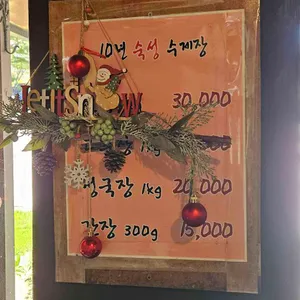 10년 숙성 수제장
let it Snow
30,000
1kg
청국장 1kg 20,000
간장 300g 15,000